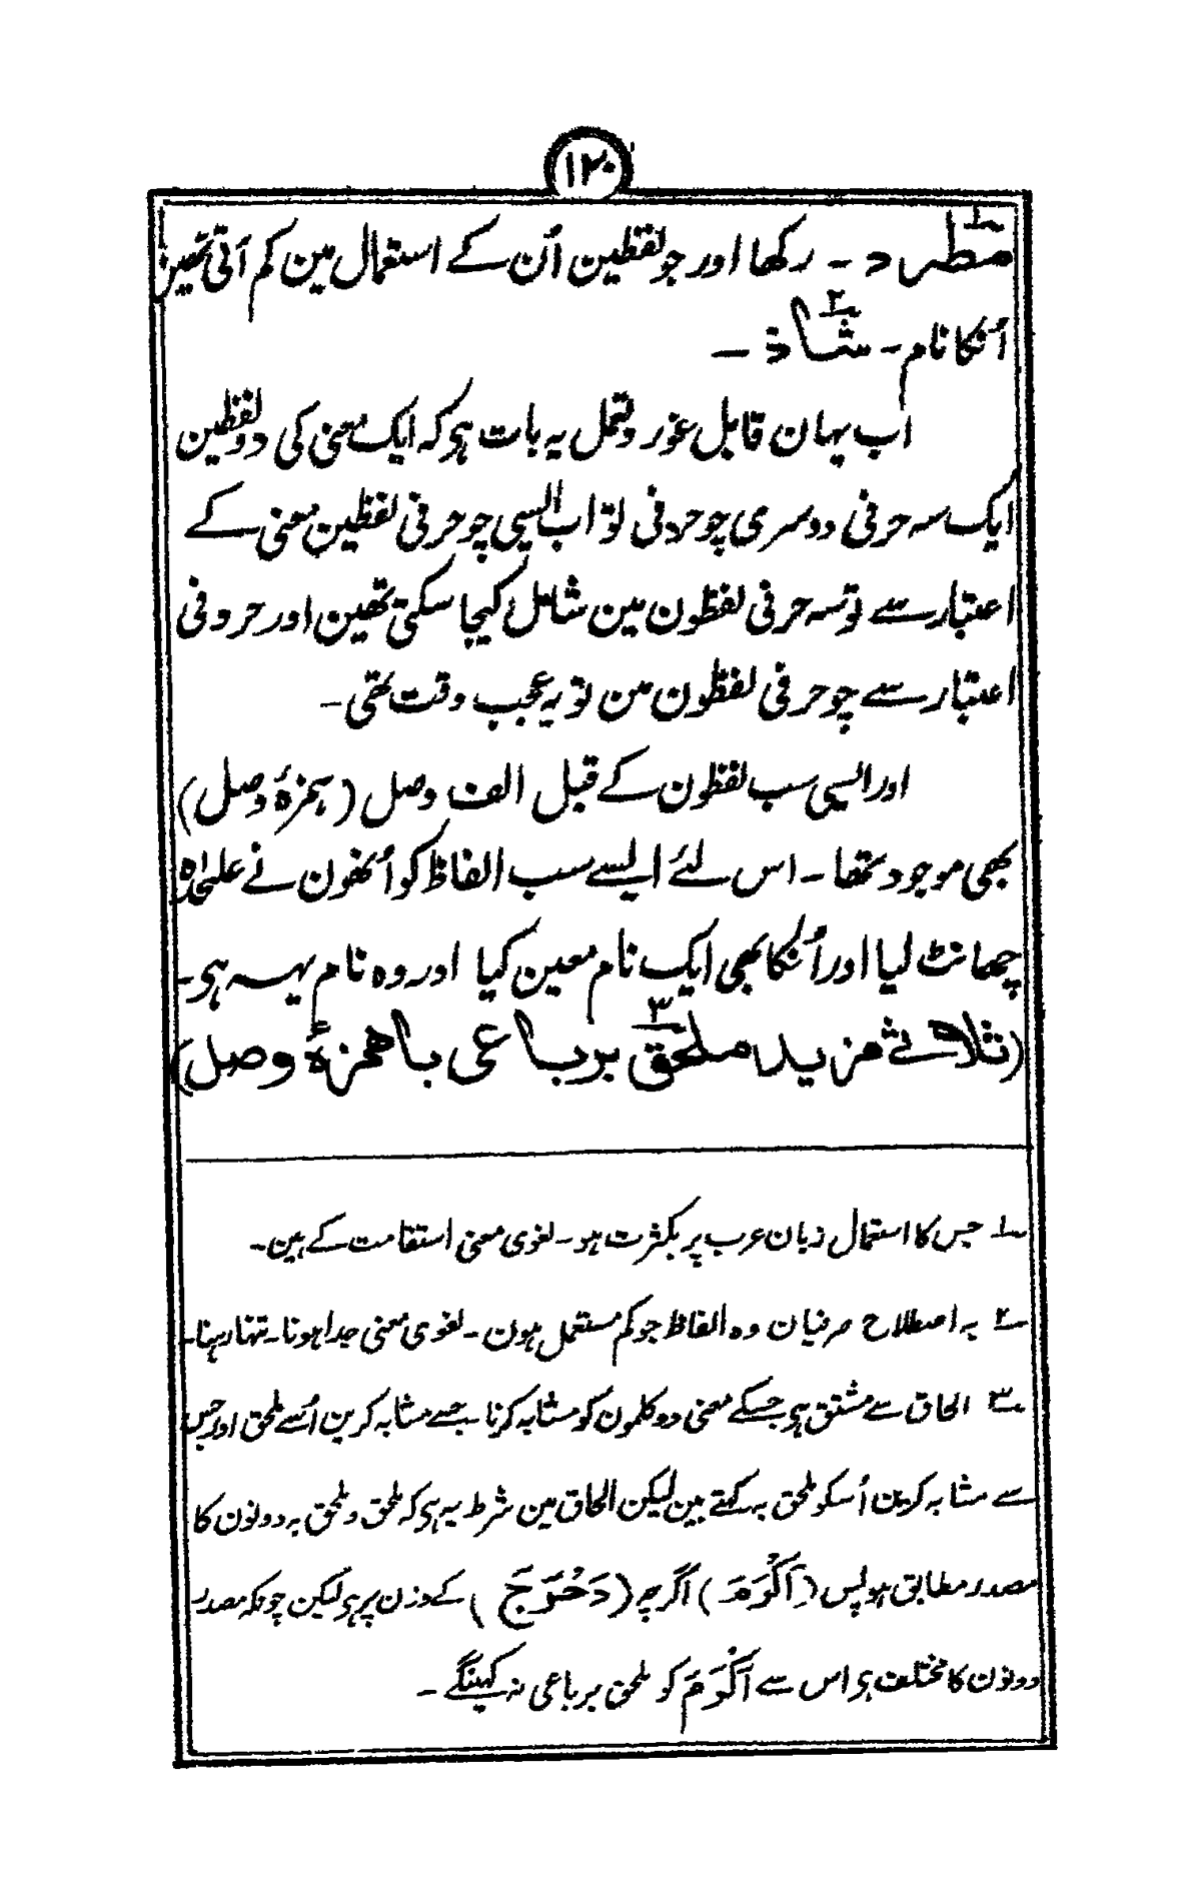 ۱۲۰
مطرد۱ ۔ رکھا اور جو لفظین اُن کے استعمال مین کم آتی تھین
اُنکا نام ۔ شاذ۲ ۔
اب یہان قابل غور و تحمل یہ بات ہی کہ ایک معنی کی دو لفظین
ایک سہ حرفی دوسری چو حرفی تو اب ایسی چو حرفی لفظین معنی کے
اعتبار سے تو سہ حرفی لفظون مین شامل کیجا سکتی تھین اور حروفی
اعتبار سے چو حرفی لفظون من تو یہ عجب وقت تھی ۔
اور ایسی سب لفظون کے قبل الف وصل (ہمزۂ وصل)
بھی موجود تھا ۔ اس لئے ایسے سب الفاظ کو اُنھون نے علیٰحدہ
چھانٹ لیا اور اُنکا بھی ایک نام معین کیا اور وہ نام یہہ ہی ۔
(ثلاثی مزید ملحق۳ برباعی باھمزۂ وصل)
۱ جس کا استعمال زبان عرب پر بکثرت ہو ۔ لغوی معنی استقامت کے ہین ۔
۲ بہ اصطلاح صرفیان وہ الفاظ جو کم مستعمل ہون ۔ لغوی معنی جدا ہونا ۔ تنہا رہنا ۔
۳ الحاق سے مشتق ہی جسکے معنی دو کلمون کو مشابہ کرنا ۔ جسے مشابہ کرین اُسے ملحق اور جس
سے مشابہ کرین اُسکو ملحق بہ کہتے ہین لیکن الحاق مین شرط یہ ہی کہ ملحق و ملحق بہ دونون کا
مصدر مطابق ہو پس (اَکْرَمَ) اگرچہ (دَحْرَجَ) کے وزن پر ہی لیکن چونکہ مصدر
دونون کا مختلف ہی اس سے اَکْرَمَ کو ملحق برباعی نہ کہینگے ۔